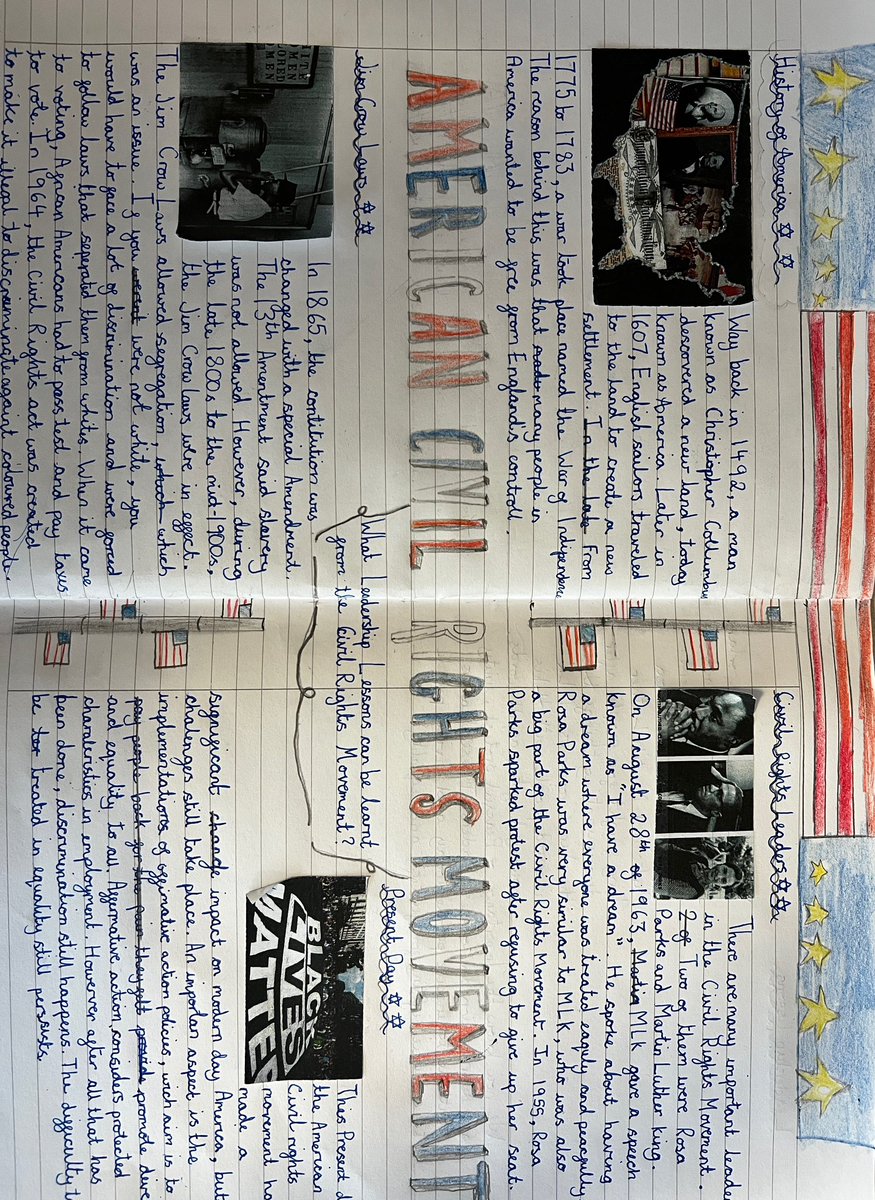 History of America
Way back in 1492, a man
known as Christopher Collumbus
discovered a new land, today
known as America. Later in
1607, English sailors traveled
to the land to create a new
settlement. In the late From
1775 to 1783, a war took place named the War of Independence
The reason behind this was that many people in
America wanted to be free from England's controll.
Civil Rights Leaders
There are many important leade
in the Civil Rights Movement.
2 of Two of them were Rosa
Parks and Martin Luther king.
On August 28th of 1963, Martin MLK gave a speech
known as "I have a dream". He spoke about having
a dream where everyone was treated eaqully and peacfully
Rosa Parks was very similar to MLK, who was also
a big part of the Civil Rights Movement. In 1955, Rosa
Parks sparked protest after refusing to give up her seat.
AMERICAN CIVIL RIGHTS MOVEMENT
What Leadership Lessons can be learnt
from the Civil Rights Movement?
Jim Crow Laws
WHITE
MEN
COLORED
MEN
In 1865, the contitution was
changed with a special Amendment.
The 13th Amentment said slavery
was not allowed. However, during
the late 1800s to the mid-1900s,
the Jim Crow laws were in effect.
The Jim Crow Laws allowed segregation, which which
was an issue. If you were not white, you
would have to face a lot of discrimination and were forced
to follow laws that seperatd them from whites. When it came
to voting, African Americans had to pass test and pay taxes
to vote. In 1964, the Civil Rights act was created
to make it illegal to discriminate againt coloured people.
Present Day
BLACK
LIVES
MATTER
This Present d
the American
Civil rights
movement ha
made a
significant change impact on modern day America, but
challenges still take place. An importan aspect is the
implementations of affirmative action polices, wich aim is to
pay people back for the pain they felt provide promote dive
and equality to all. Affermative action, considers protected
charateristics in employment. Howerver after all that has
been done, discrimination still happens. The difficulty t
be tor treated in equality still persists.